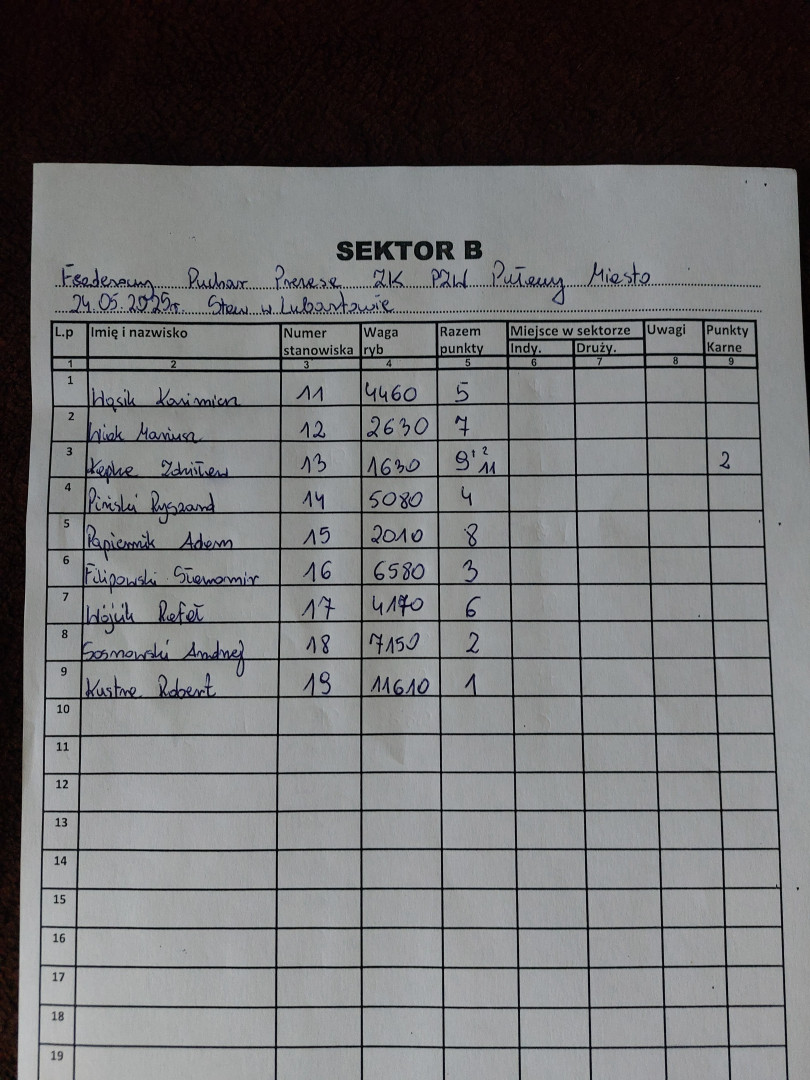 SEKTOR B
Feederowy Puchar Prezesa ZK PZW Puławy Miasto
24.05.2025r. Staw w Lubartowie
L.p Imię i nazwisko Numer stanowiska Waga ryb Razem punkty Miejsce w sektorze Indy. Druży. Uwagi Punkty Karne
1 2 3 4 5 6 7 8 9
1 Wąsik Kazimierz 11 4460 5
2 Mariusz 12 2630 7
3 13 1630 9+2 11 2
4 Piński Ryszard 14 5080 4
5 Papiernik Adam 15 2010 8
6 Filipowski Sławomir 16 6580 3
7 Wójcik Rafał 17 4170 6
8 Sosnowski Andrzej 18 7150 2
9 Kustra Robert 19 11610 1
10
11
12
13
14
15
16
17
18
19